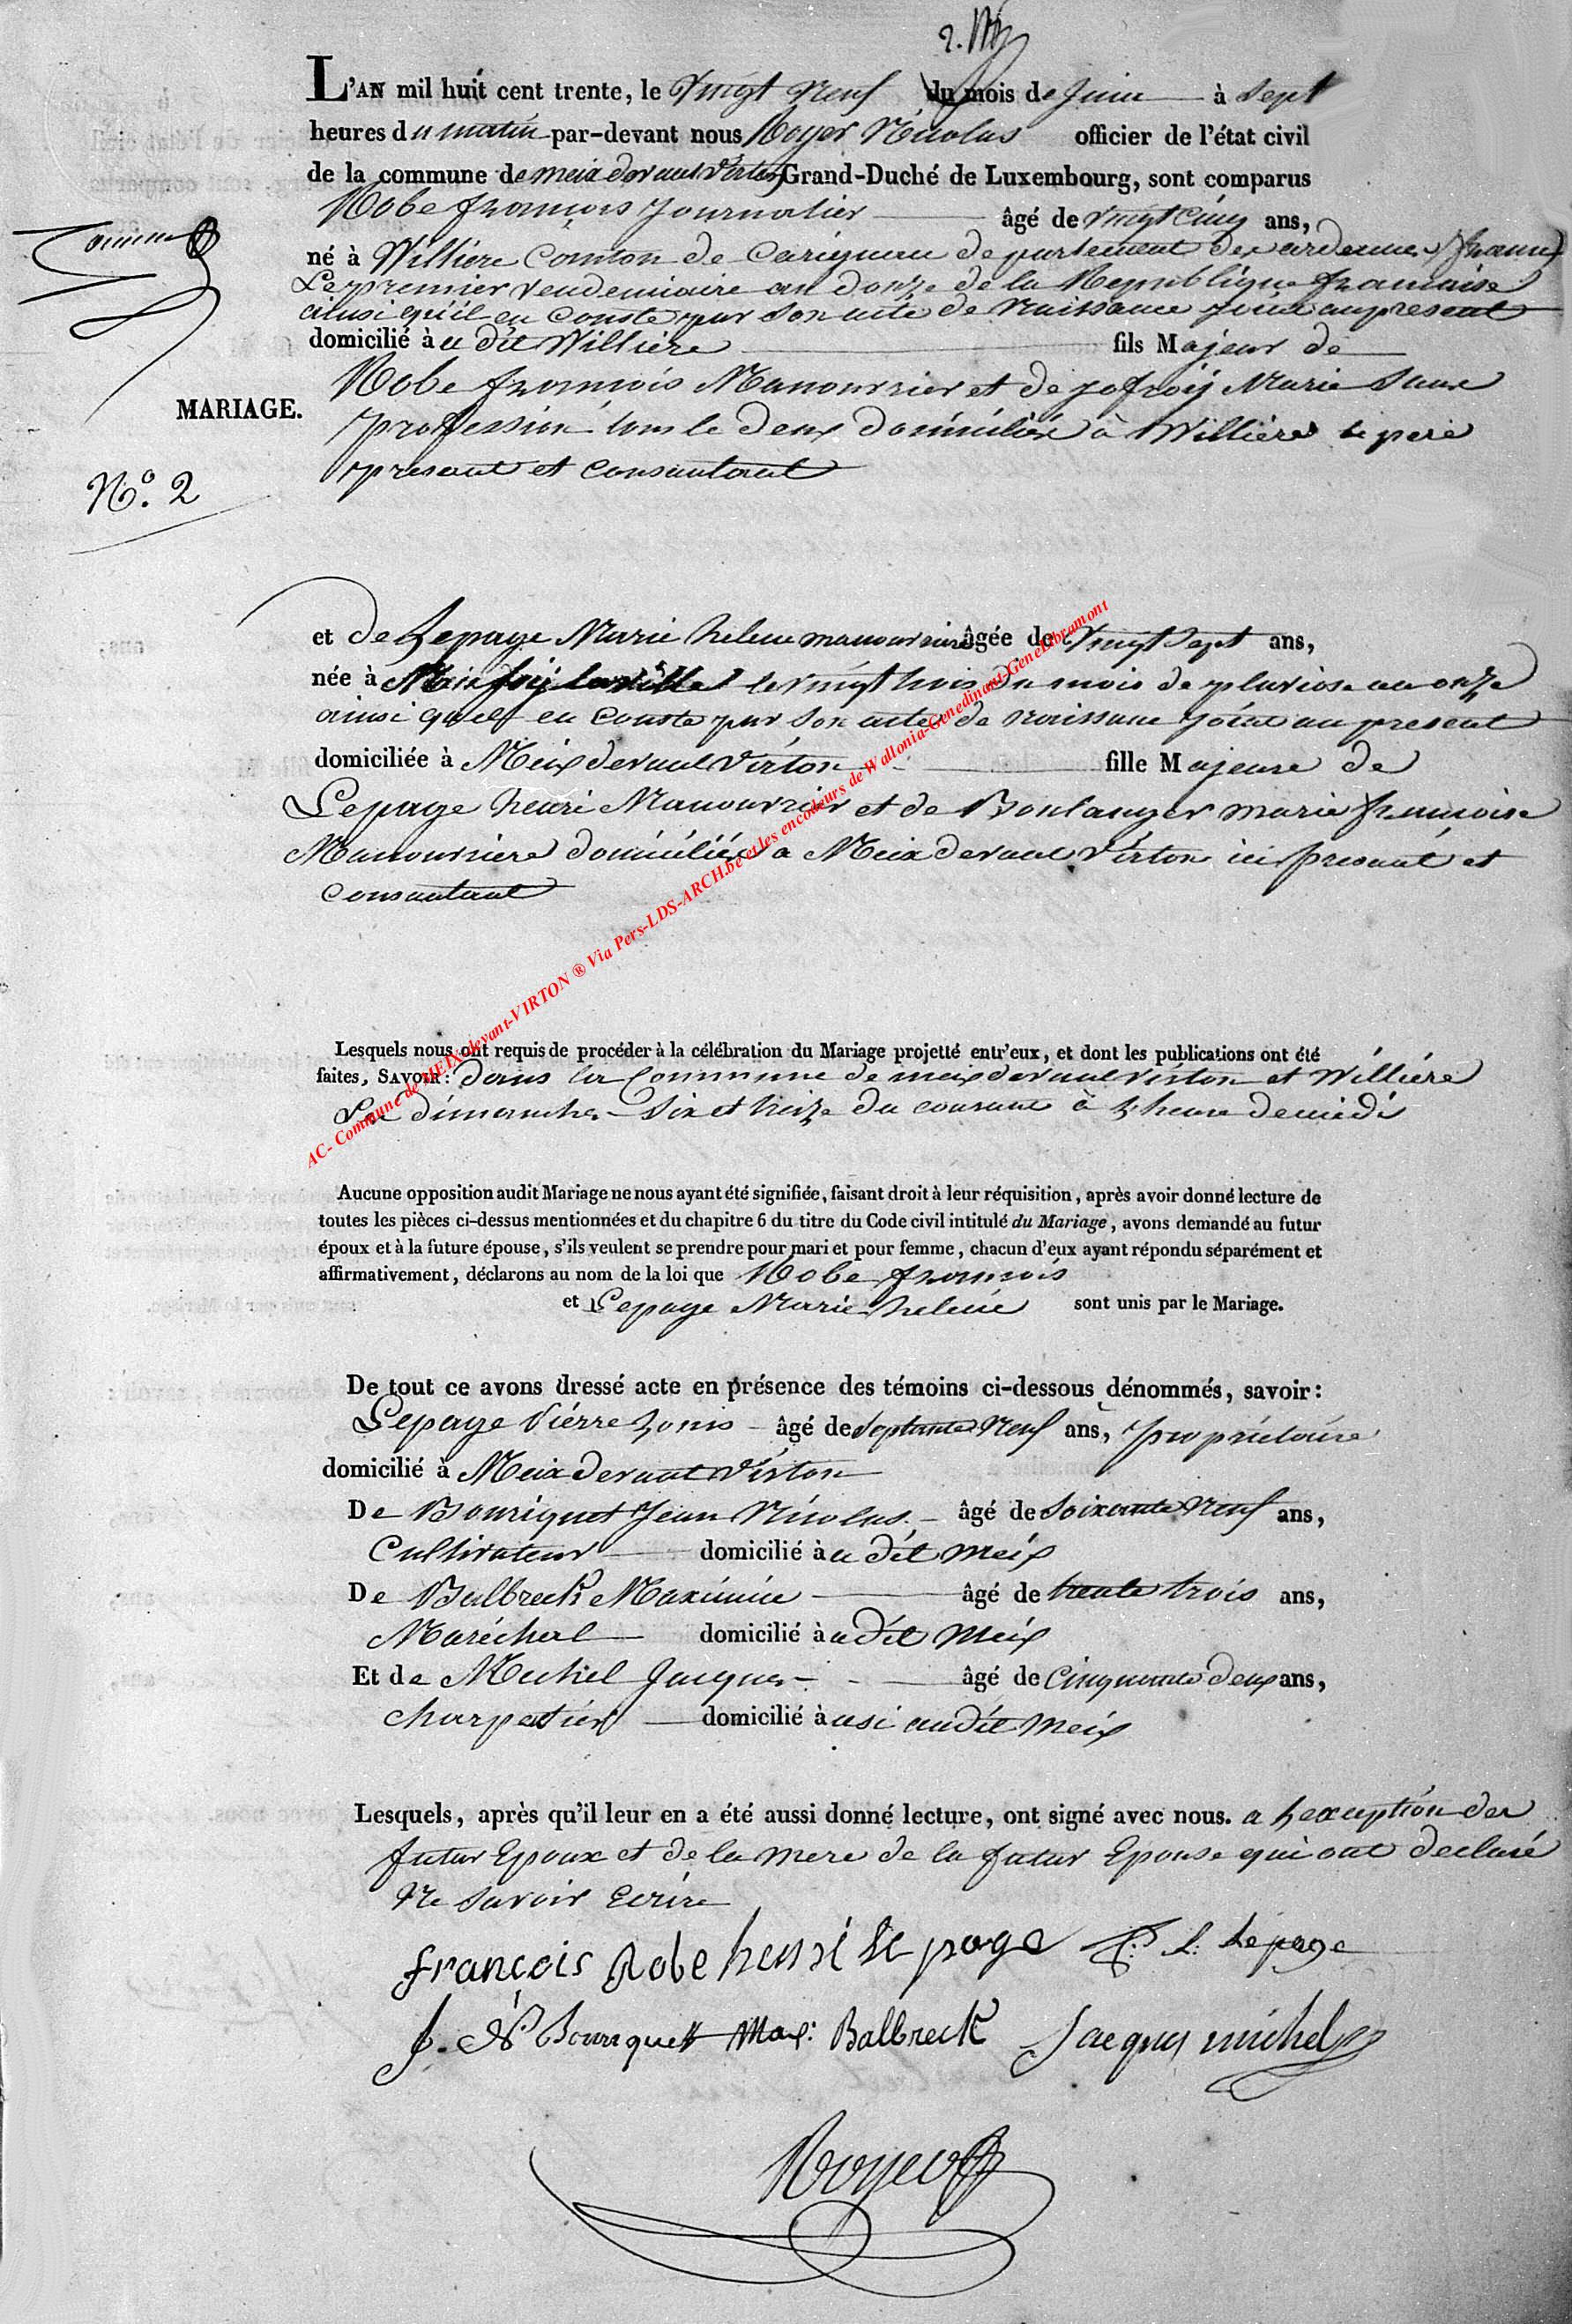 L'AN mil huit cent trente, le Vingt Neuf du mois de Juin à Sept
heures du matin par-devant nous Royer Nicolas officier de l'état civil
de la commune de meix devant Virton Grand-Duché de Luxembourg, sont comparus
Robe françois Journalier âgé de vingt Cinq ans,
né à Williere Canton de Carignan departement des ardennes (france)
Le premier vendemiaire an donze de la Republique francaise
ainsi qu'il en Conste par Son acte de Naissance joint au present
domicilié à u dit Williere fils Majeur de
MARIAGE.
Robe francois Manouvrier et de jofroij Marie Sans
profession tous le deux domicilié à Willieres le pere
N.º 2
present et consentant
et de Lepage Marie helene manouvriere âgée de Vingt Sept ans,
née à le vingt trois du mois de pluviose an onze
ainsi quel en Conste par Son acte de Naissance joint au present
domiciliée à Meix devant Virton fille Majeure de
Lepage henri Manouvrier et de Boulanger marie francoise
Manouvriere domiciliée a Meix devant Virton ici presant et
consantant
AC- Commune de MEIX-devant-VIRTON ® Via Pers-LDS-ARCH.be et les encodeurs de Wallonia-Genedinant-GeneLibramont
Lesquels nous ont requis de procéder à la célébration du Mariage projetté entr'eux, et dont les publications ont été
faites, SAVOIR: dans la Commune de meix devant virton et Williére
Le dimanche Six et treize du courant à heure de midi
Aucune opposition audit Mariage ne nous ayant été signifiée, faisant droit à leur réquisition, après avoir donné lecture de
toutes les pièces ci-dessus mentionnées et du chapitre 6 du titre du Code civil intitulé du Mariage, avons demandé au futur
époux et à la future épouse, s'ils veulent se prendre pour mari et pour femme, chacun d'eux ayant répondu séparément et
affirmativement, déclarons au nom de la loi que Robe francois
et Lepage Marie helene sont unis par le Mariage.
De tout ce avons dressé acte en présence des témoins ci-dessous dénommés, savoir:
Lepage Piérre Louis âgé de Septante Neuf ans, propriétaire
domicilié à Meix devant Virton
De Bouriquet Jean Nicolas âgé de Soixante Neuf ans,
Cultivateur domicilié à u dit meix
De Balbreck Maximin âgé de trente trois ans,
Maréchal domicilié à u dit Meix
Et de Michel Jacques âgé de Cinquante deux ans,
charpatier domicilié à usi audit Meix
Lesquels, après qu'il leur en a été aussi donné lecture, ont signé avec nous. a Lexception des
futur Epoux et de la mere de la futur Epouse qui ont declaré
Ne Savoir Ecrire
françois Robe henri le page P. L. Lepage
J. N. Bouriquet Max: Balbreck Jacques michel
Royer